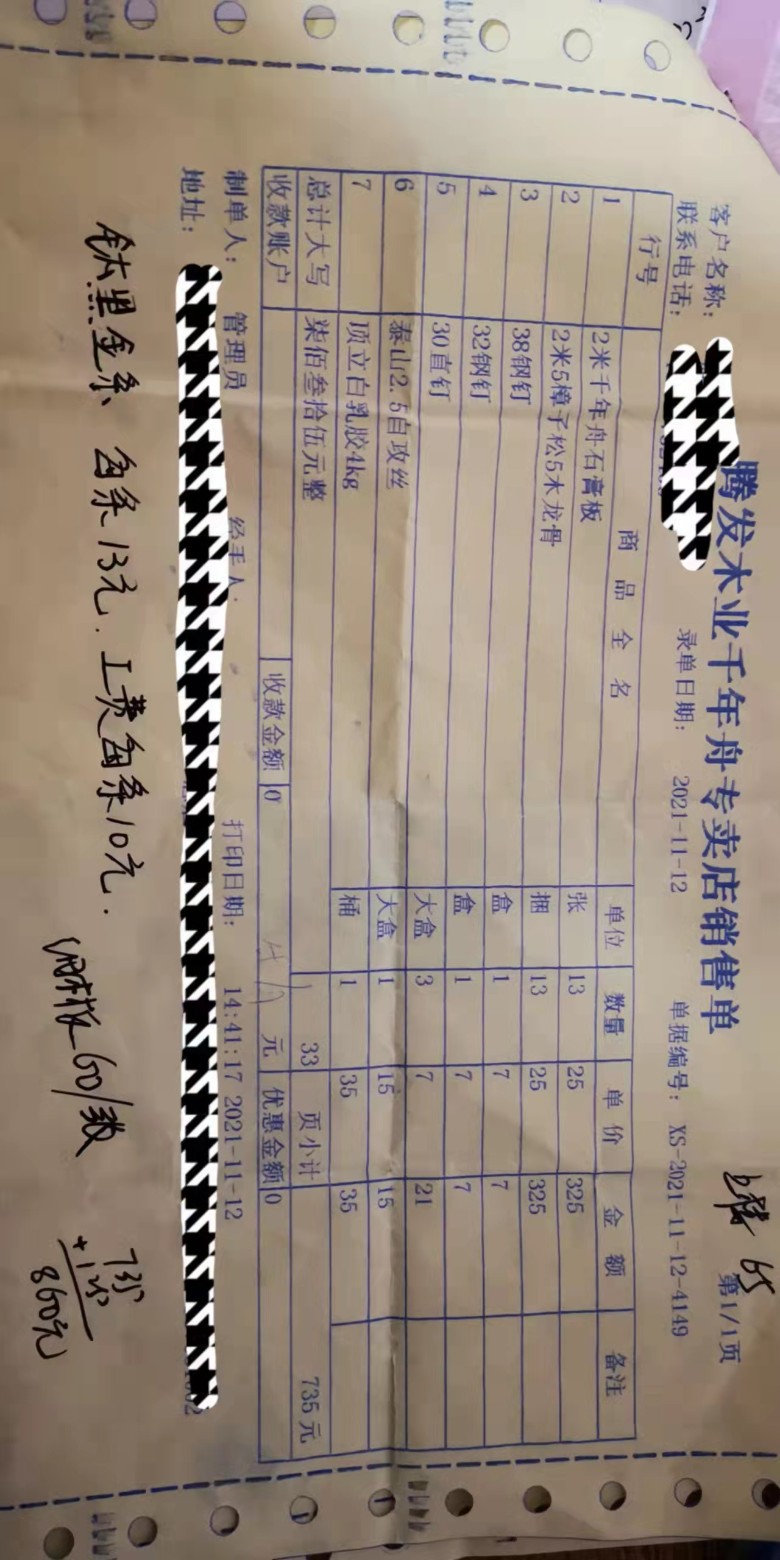 腾发木业千年舟专卖店销售单
上楼 65
第1/1页
客户名称:
联系电话:
录单日期: 2021-11-12
单据编号: XS-2021-11-12-4149
行号 商品全名 单位 数量 单价 金额 备注
1 2米千年舟石膏板 张 13 25 325
2 2米5樟子松5木龙骨 捆 13 25 325
3 38钢钉 盒 1 7 7
4 32钢钉 盒 1 7 7
5 30直钉 大盒 3 7 21
6 泰山2.5自攻丝 大盒 1 15 15
7 顶立白乳胶4kg 桶 1 35 35
总计大写 柒佰叁拾伍元整 33 页小计 735元
收款账户 收款金额 0 元 优惠金额 0
制单人: 管理员 经手人: 打印日期: 14:41:17 2021-11-12
地址:
钛黑金条 每条13元. 工费每条10元.
60/张
735
+125
860元